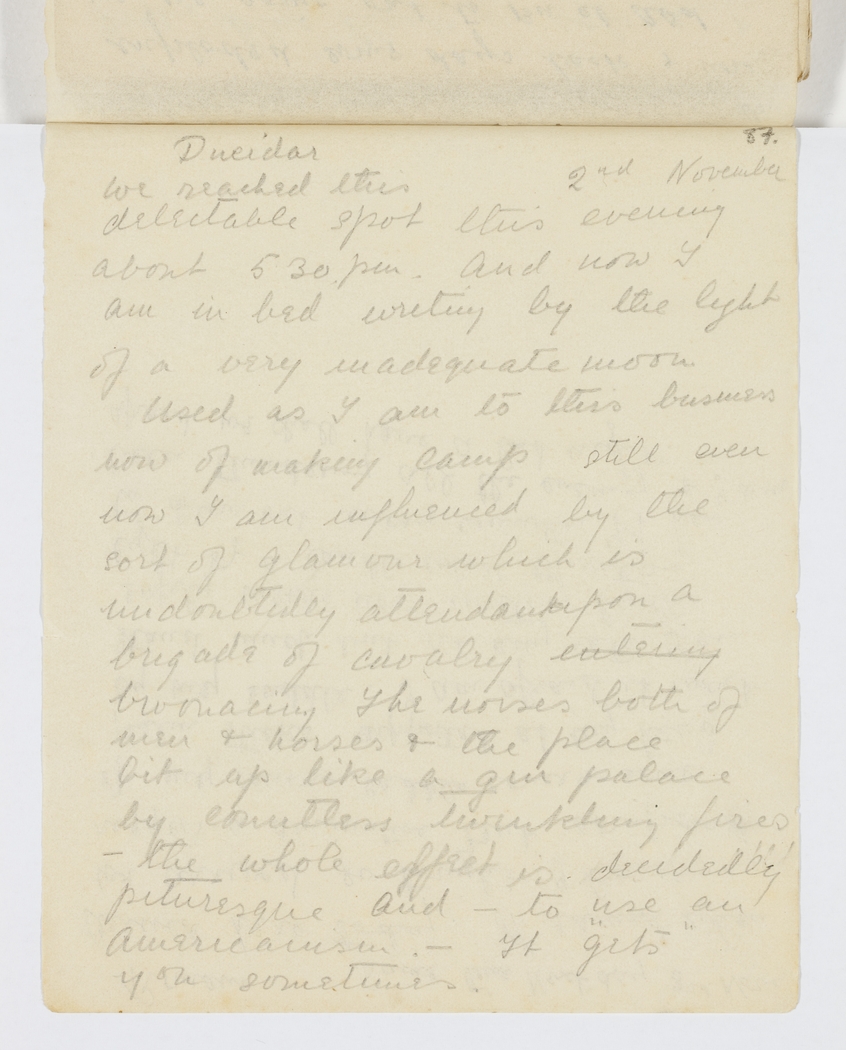 57.
Dueidar
2nd November
We reached this
delectable spot this evening
about 5 30 pm. And now I
am in bed writing by the light
of a very inadequate moon
Used as I am to this business
now of making camp still even
now I am influenced by the
sort of glamour which is
undoubtedly attendant upon a
brigade of cavalry entering
bivouacing The noises both of
men & horses & the place
lit up like a gin palace
by countless twinkling fires
- the whole effect is decidedly
picturesque and - to use an
Americanism. - It "gets"
you sometimes.